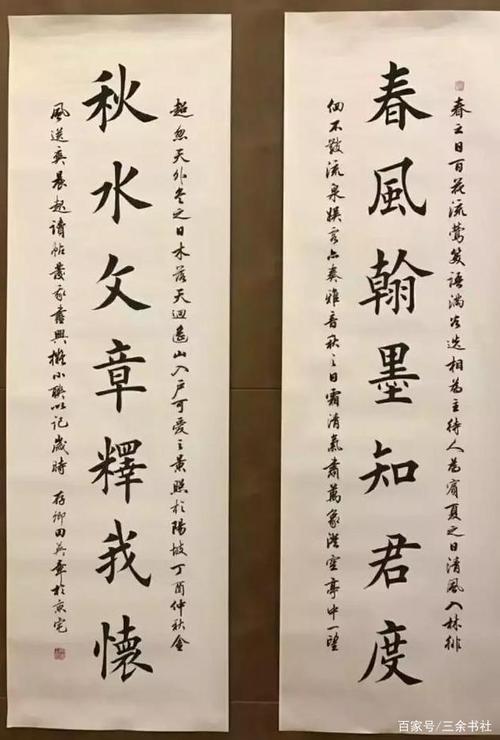 春風翰墨知君度
春之日百花流鶯笑語滿谷迭相為主待人為賓夏之日清風入林排
徊不散流泉娛客亦奏雅音秋之日霜清氣肅萬象澄空亭中一望
超忽天外冬之日木落天迴遠山入戶可愛之黃照於陽坡丁酉仲秋金
秋水文章釋我懷
風送爽晨起讀帖發家書興撰小聯以記歲時 存卿田英章於京宅
百家号/三余书社